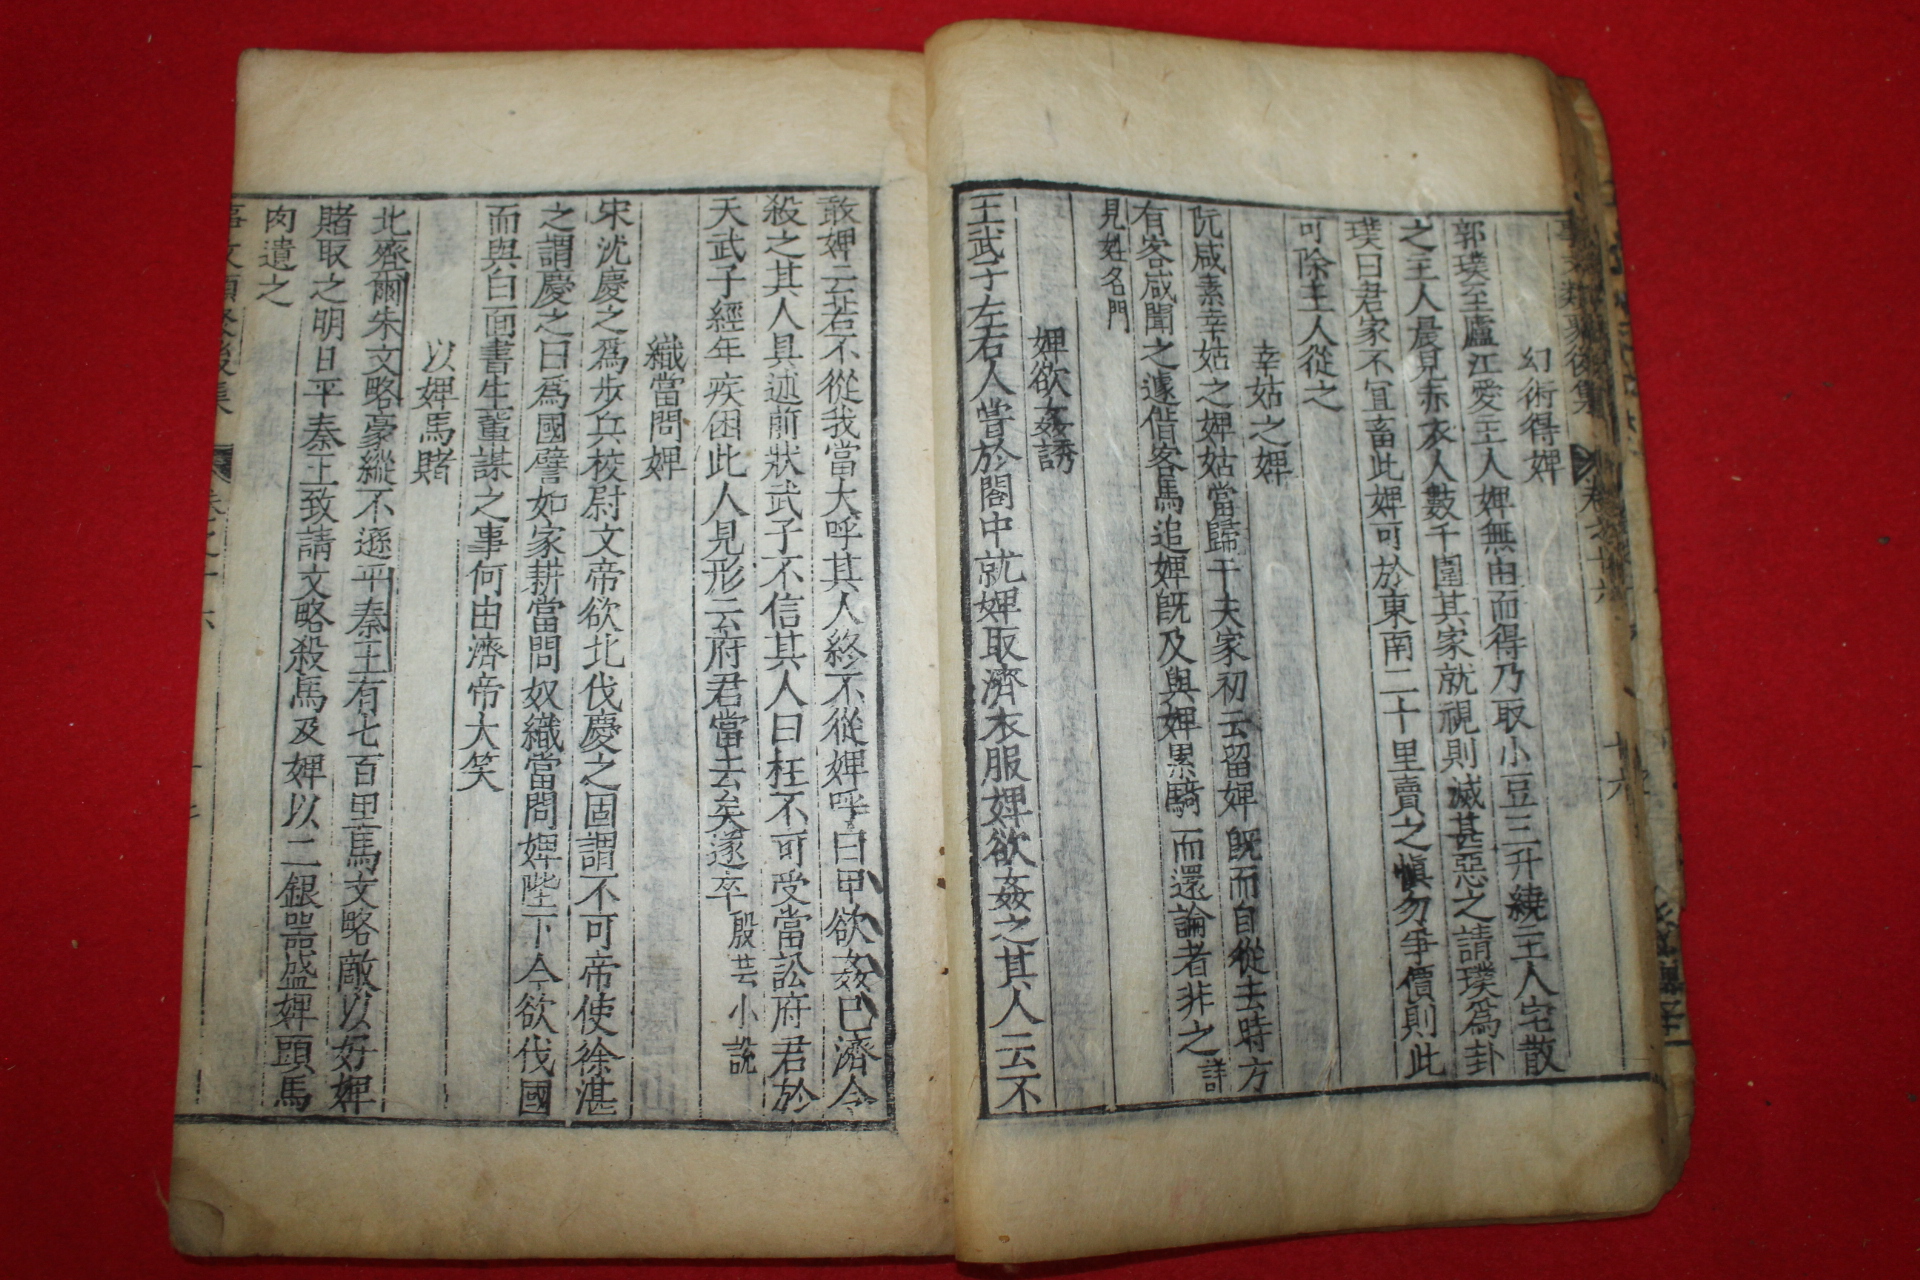 事文類聚後集 卷之十六 十六
幻術得婢
郭璞至廬江愛主人婢無由而得乃取小豆三升繞主人宅散
之主人晨見赤衣人數千圍其家就視則滅甚惡之請璞爲卦
璞曰君家不宜畜此婢可於東南二十里賣之愼勿爭價則此
可除主人從之
幸姑之婢
阮咸素幸姑之婢姑當歸于夫家初云留婢旣而自從去時方
有客咸聞之遽借客馬追婢旣及與婢累騎而還論者非之詳
見姓名門
婢欲姦誘
王武子左右人嘗於閣中就婢取濟衣服婢欲姦之其人云不
敢婢云若不從我當大呼其人終不從婢呼曰甲欲姦已濟令
殺之其人具述前狀武子不信其人曰枉不可受當訟府君於
天武子經年疾困此人見形云府君當去矣遂卒殷芸小說
織當問婢
宋沈慶之爲步兵校尉文帝欲北伐慶之固謂不可帝使徐湛
之謂慶之曰爲國譬如家耕當問奴織當問婢陛下今欲伐國
而與白面書生輩謀之事何由濟帝大笑
以婢馬賭
北齊爾朱文略豪縱不遜平秦王有七百里馬文略敵以好婢
賭取之明日平秦王致請文略殺馬及婢以二銀器盛婢頭馬
肉遺之
事文類聚後集 卷之十六